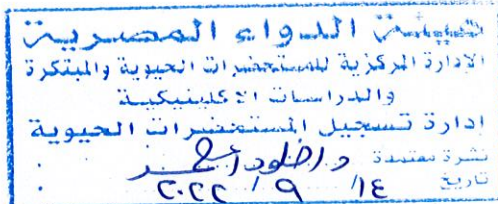 هيئة الدواء المصرية
الإدارة المركزية للمستحضرات الحيوية والمبتكرة
والدراسات الاكلينيكية
إدارة تسجيل المستحضرات الحيوية
نشرة معتمدة د/خلود أحمد
تاريخ ١٤ / ٩ / ٢٠٢٢